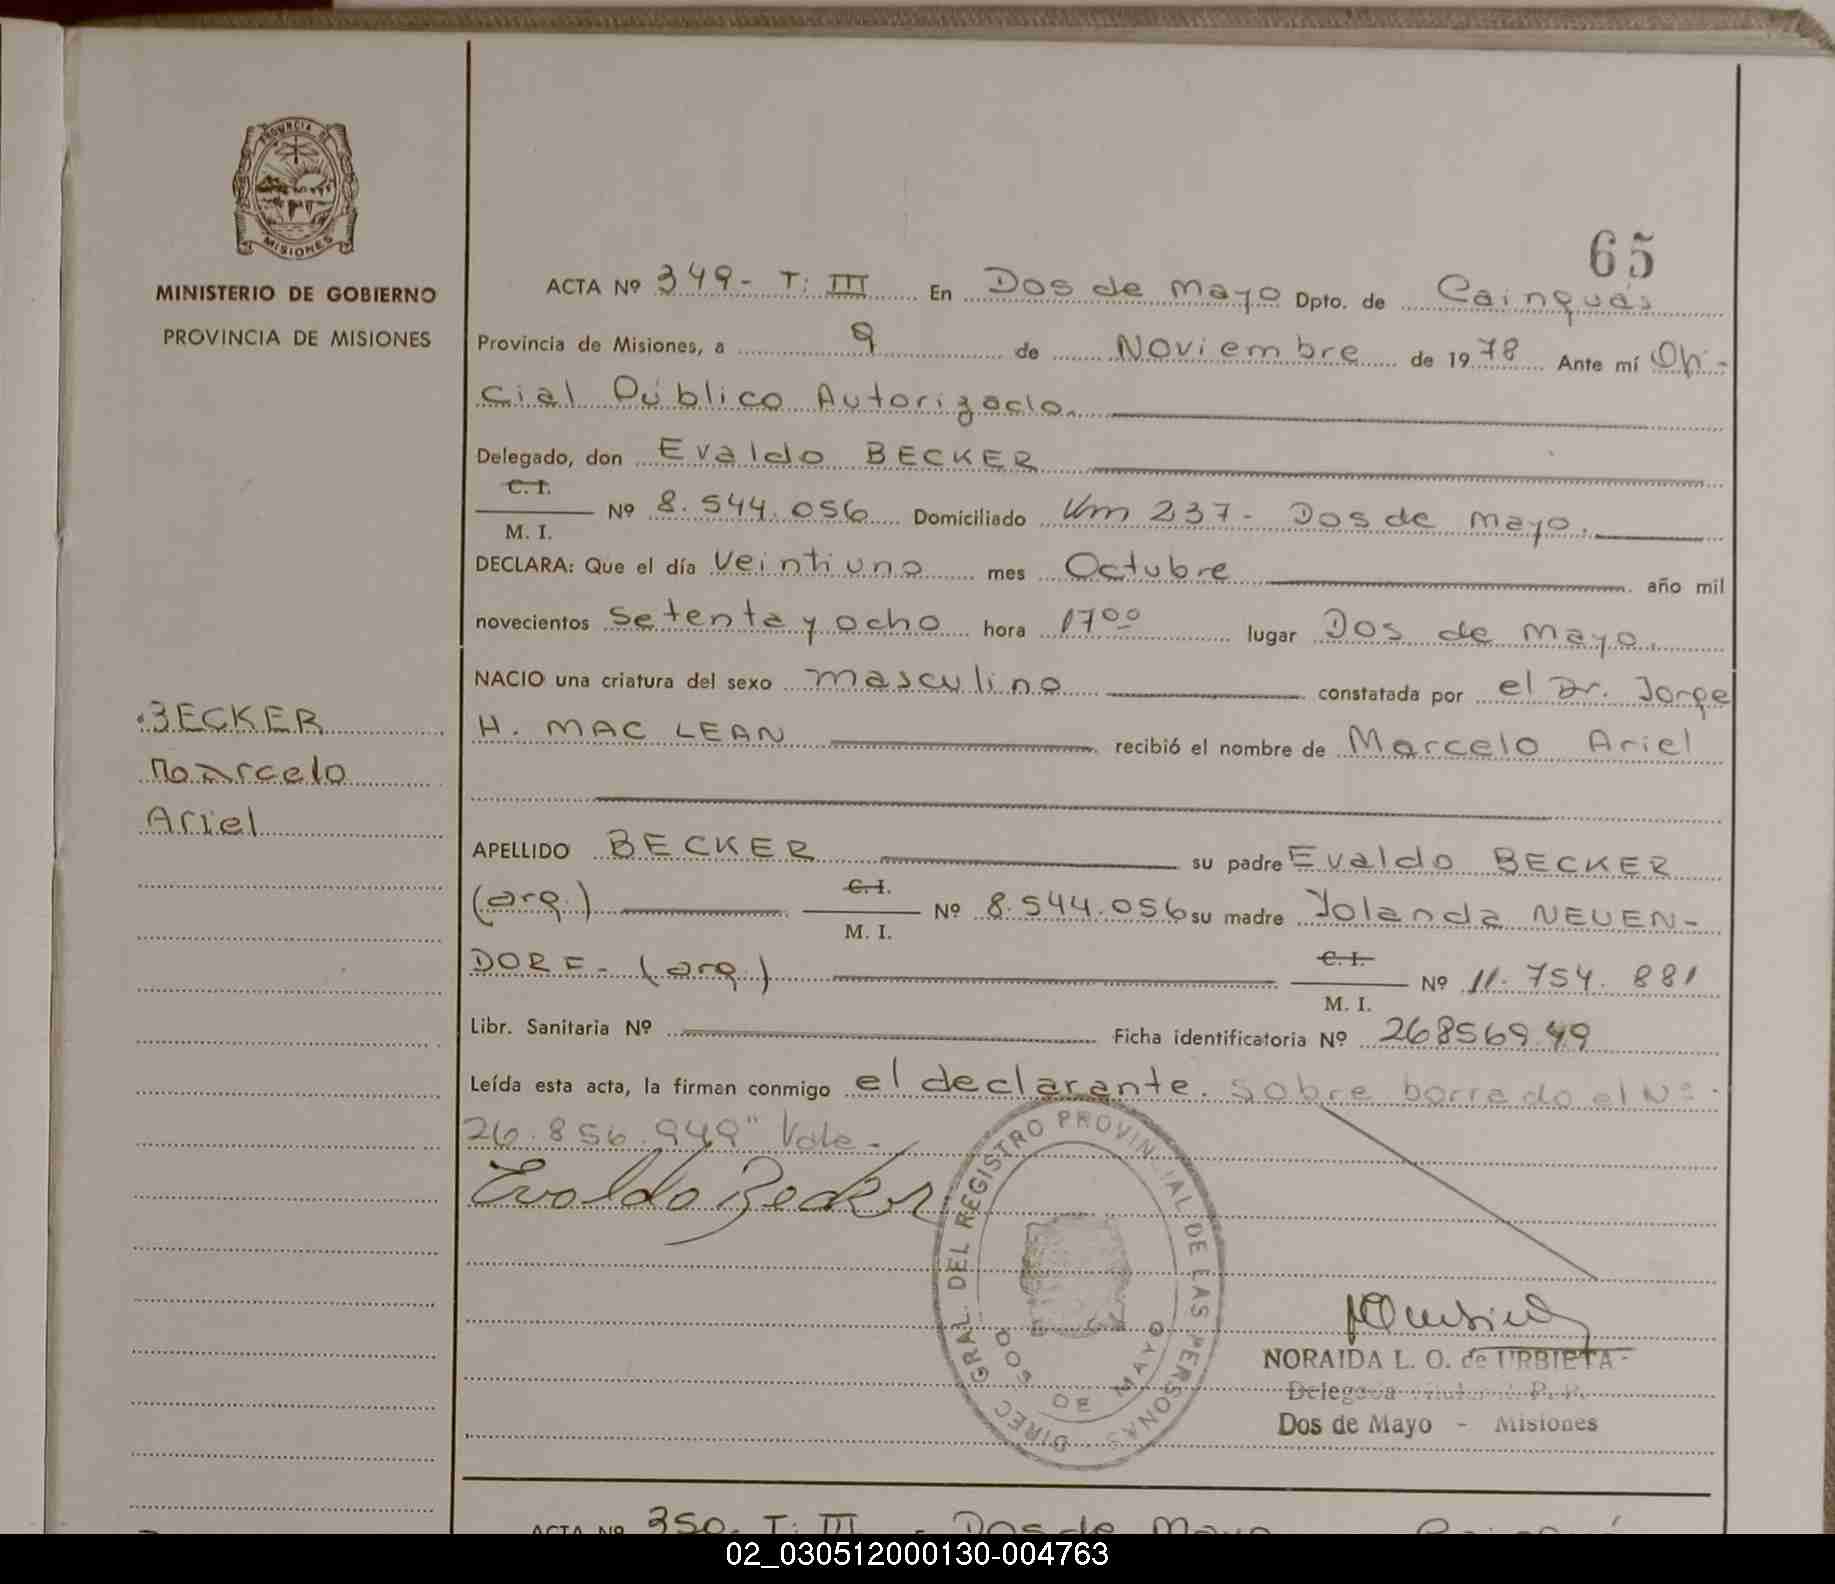 PROVINCIA DE
MISIONES
MINISTERIO DE GOBIERNO
PROVINCIA DE MISIONES
BECKER
Marcelo
Ariel
65
ACTA Nº 349- T: III En Dos de mayo Dpto. de Cainguás
Provincia de Misiones, a 9 de Noviembre de 1978 Ante mí Ofi-
cial Público Autorizado.
Delegado, don Evaldo BECKER
C. I.
M. I. Nº 8.544.056 Domiciliado Km 237- Dos de mayo.
DECLARA: Que el día Veintiuno mes Octubre año mil
novecientos setenta y ocho hora 17ºº lugar Dos de mayo.
NACIO una criatura del sexo masculino constatada por el Dr. Jorge
H. MAC LEAN recibió el nombre de Marcelo Ariel
APELLIDO BECKER su padre Evaldo BECKER
(arg.) C. I. M. I. Nº 8.544.056 su madre Yolanda NEUEN-
DORF- (arg.) C. I. M. I. Nº 11.754.881
Libr. Sanitaria Nº Ficha identificatoria Nº 26856949
Leída esta acta, la firman conmigo el declarante. Sobre borrado el Nº
26.856.949" Vale-
Evaldo Becker
DIREC GRAL. DEL REGISTRO PROVINCIAL DE LAS PERSONAS
DOS DE MAYO
NORAIDA L. O. de URBIETA
Delegada
Dos de Mayo - Misiones
ACTA Nº 350- T: III - Dos de Mayo
02_030512000130-004763